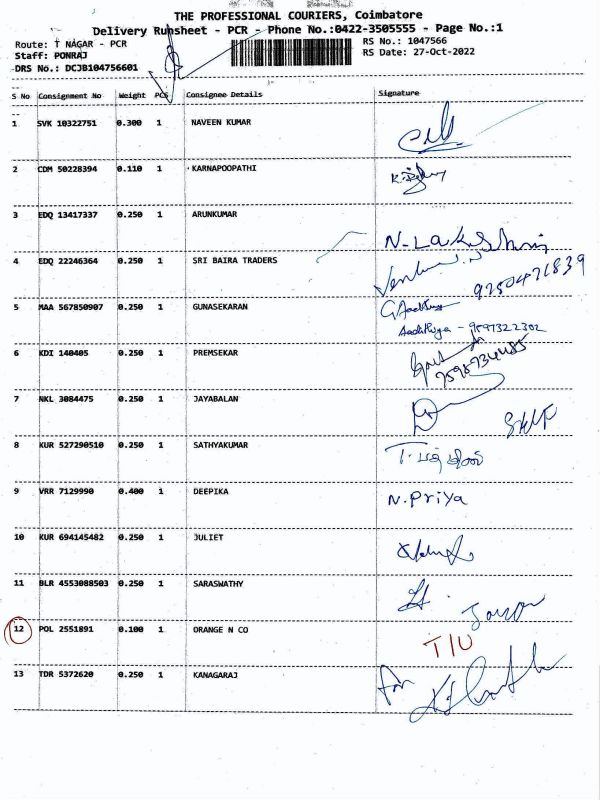 THE PROFESSIONAL COURIERS, Coimbatore
Delivery Runsheet - PCR - Phone No.:0422-3505555 - Page No.:1
Route: T NAGAR - PCR
RS No.: 1047566
Staff: PONRAJ
RS Date: 27-Oct-2022
DRS No.: DCJB104756601
S No Consignment No Weight PCS Consignee Details Signature
1 SVK 10322751 0.300 1 NAVEEN KUMAR
2 CDM 50228394 0.110 1 KARNAPOOPATHI
3 EDQ 13417337 0.250 1 ARUNKUMAR N-Lakshmi
4 EDQ 22246364 0.250 1 SRI BAIRA TRADERS
9750471839
5 MAA 567850907 0.250 1 GUNASEKARAN
9597322302
6 KDI 140405 0.250 1 PREMSEKAR
7 NKL 3084475 0.250 1 JAYABALAN
Self
8 KUR 527290510 0.250 1 SATHYAKUMAR
9 VRR 7129990 0.400 1 DEEPIKA N.Priya
10 KUR 694145482 0.250 1 JULIET
11 BLR 4553088503 0.250 1 SARASWATHY
12 POL 2551891 0.100 1 ORANGE N CO T/U
13 TDR 5372620 0.250 1 KANAGARAJ for